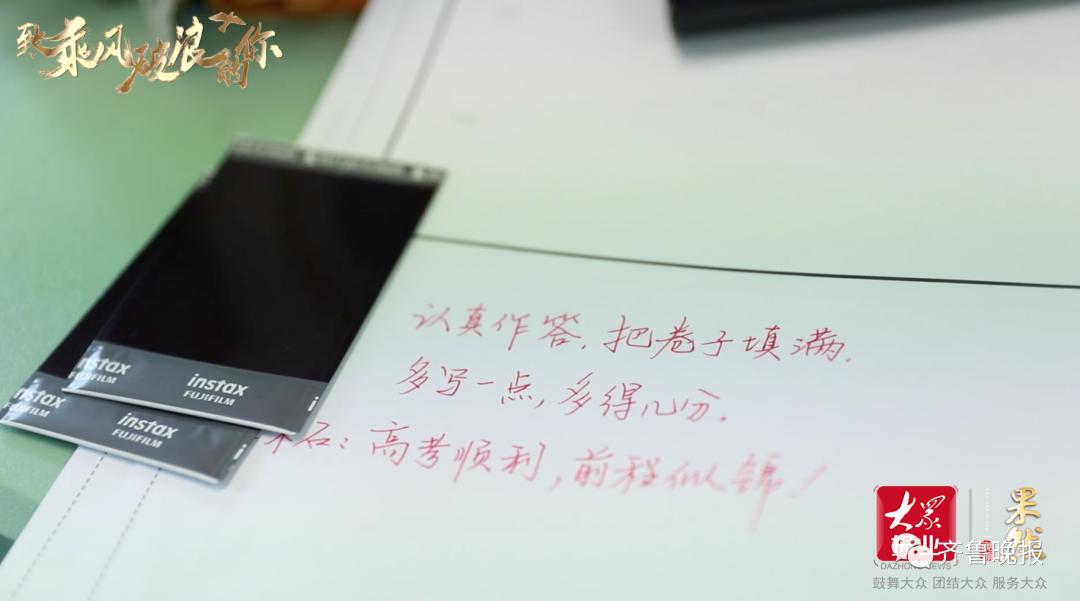 致乘风破浪的你
认真作答,把卷子填满.
多写一点,多得几分.
石:高考顺利,前程似锦!
instax
FUJIFILM
instax
FUJIFILM
instax
FUJIFILM
instax
FUJIFILM
大众
报业
DAZHONG NEWS
果然
齐鲁晚报
鼓舞大众 团结大众 服务大众